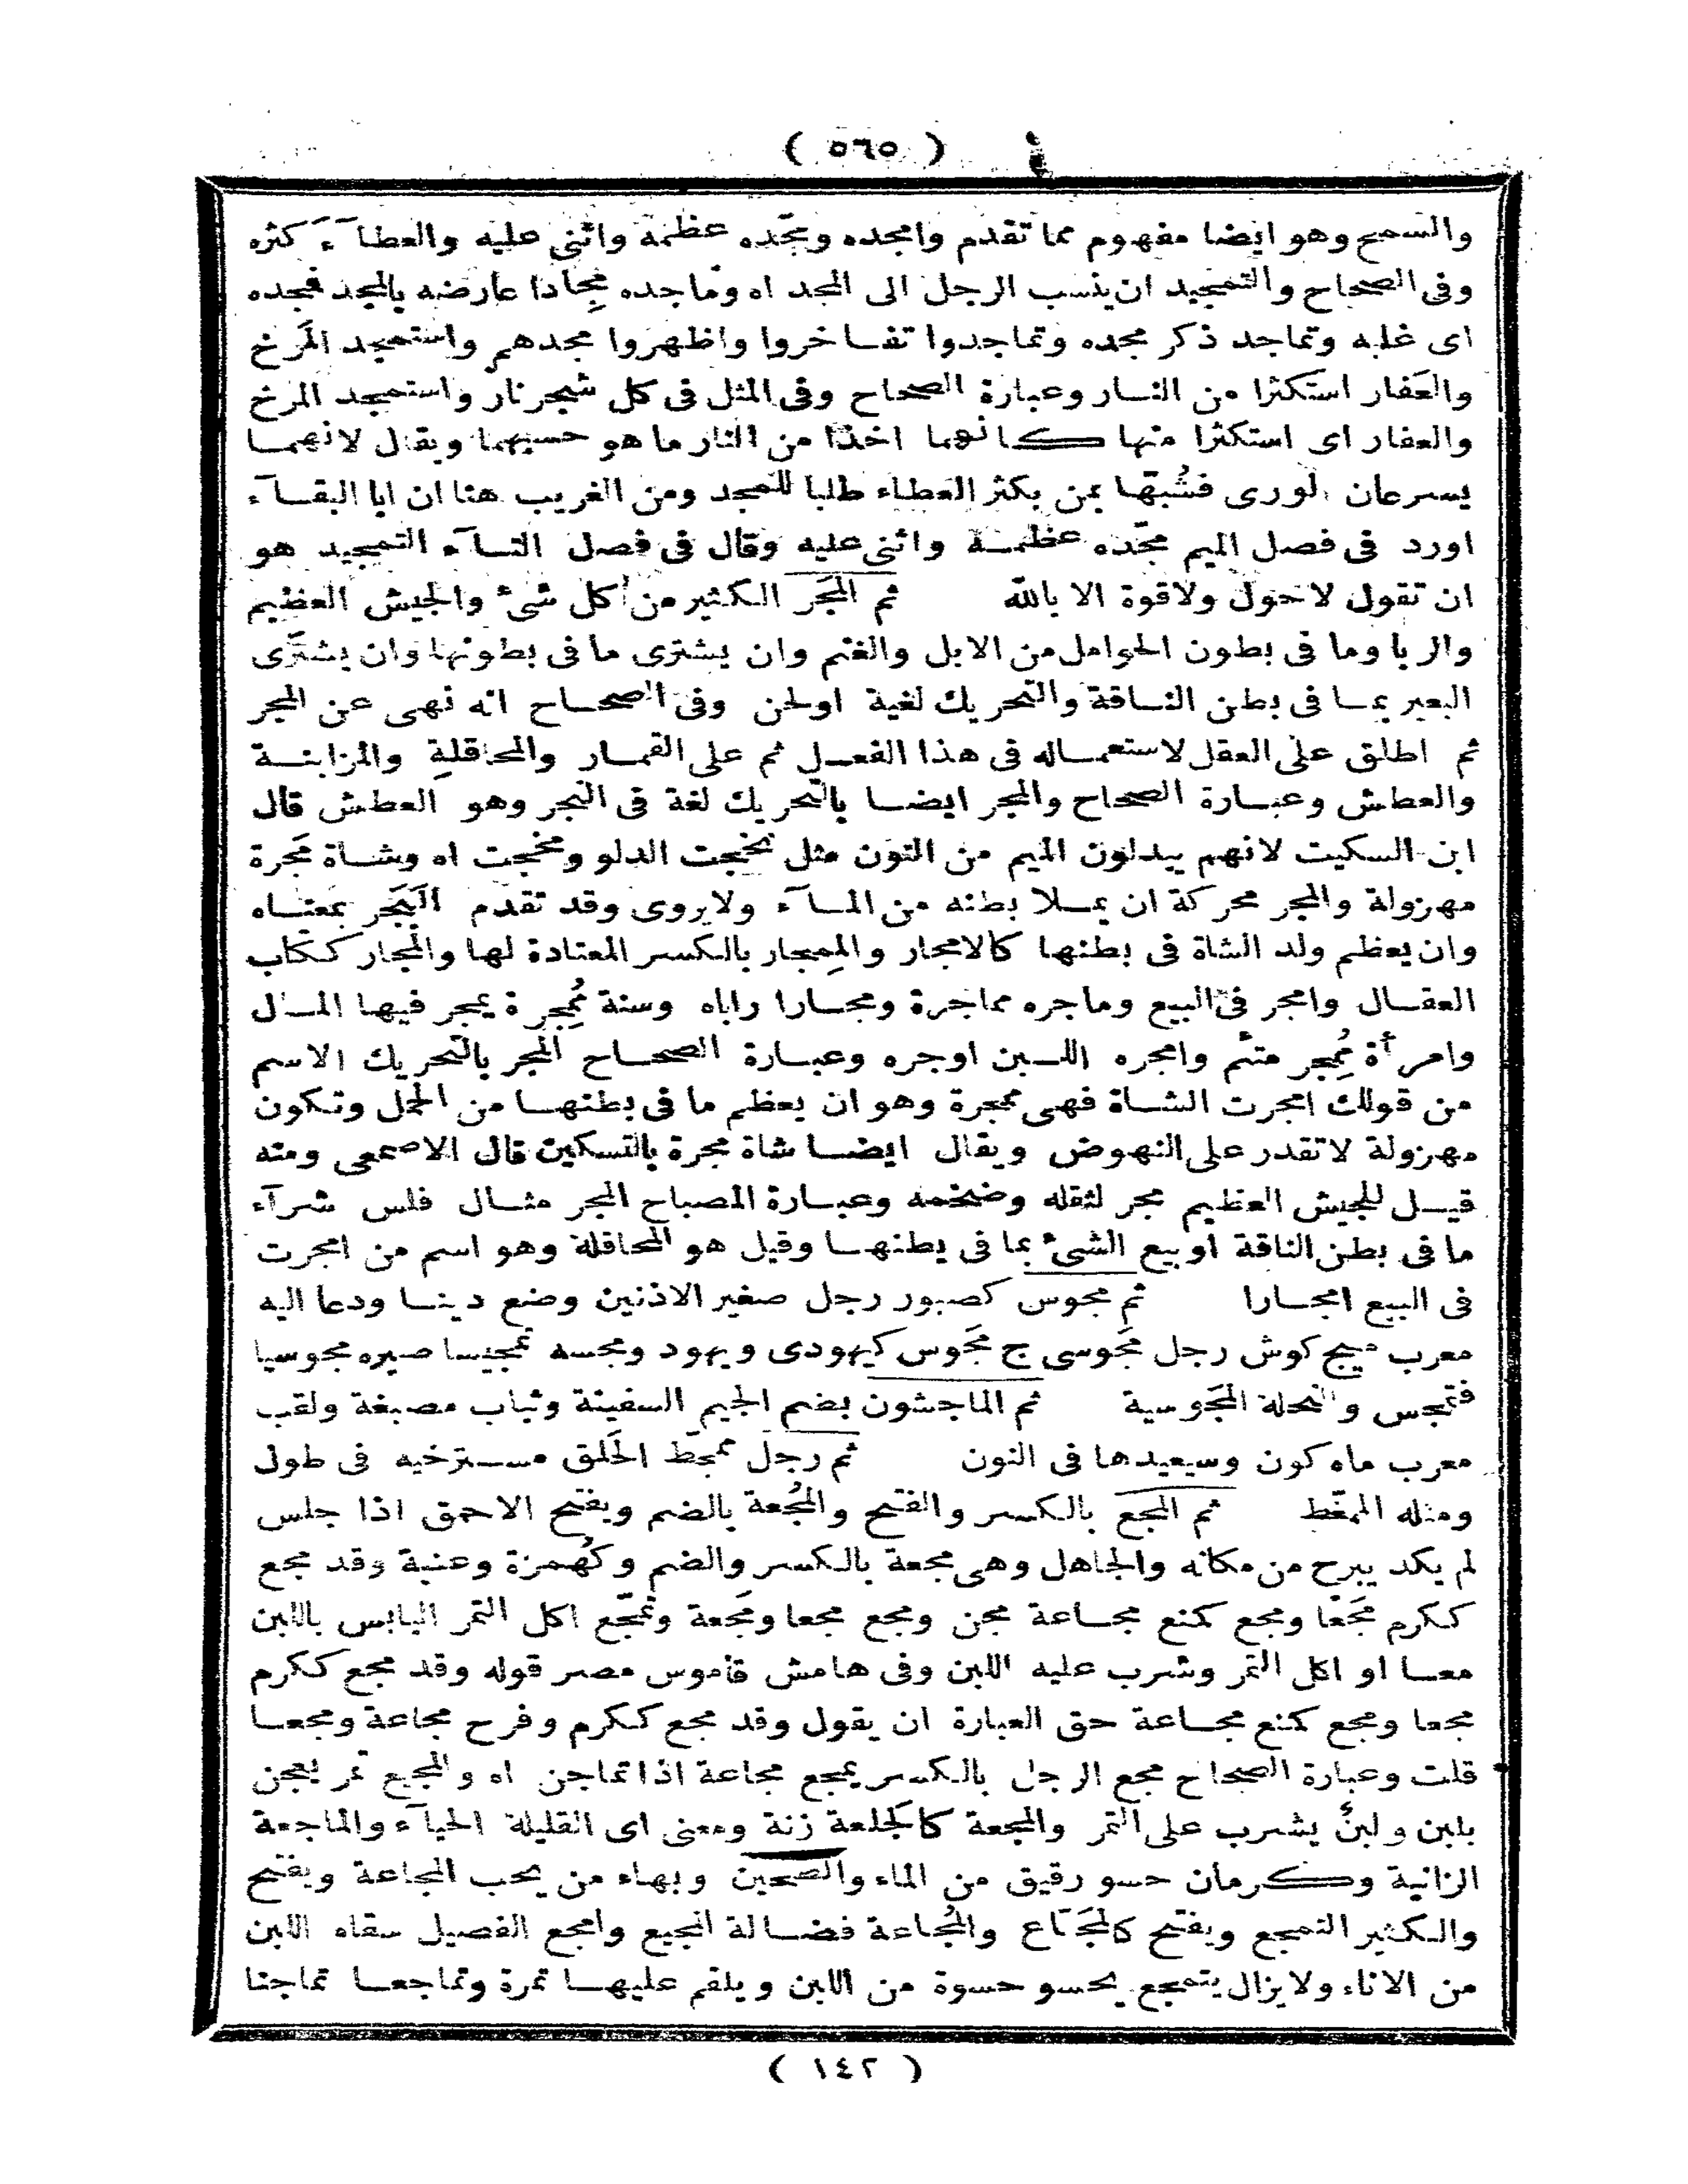 ( ٥٦٥ )
والسمح وهو ايضا مفهوم مما تقدم وامجده ومجّده عظمه واثنى عليه والعطآء كثره
وفى الصحاح والتمجيد ان ينسب الرجل الى المجد اه وماجده مِجادا عارضه بالمجد فمجده
اى غلبه وتماجد ذكر مجده وتماجدوا تفاخروا واظهروا مجدهم واستمجد المَرخ
والعَفار استكثرا من النار وعبارة الصحاح وفى المثل فى كل شجر نار واستمجد المرخ
والعفار اى استكثرا منها كانهما اخذا من النار ما هو حسبهما ويقال لانهما
يسرعان الورى فشُبّها بمن يكثر العطاء طلبا للمجد ومن الغريب هنا ان ابا البقآء
اورد فى فصل الميم مجّده عظمه واثنى عليه وقال فى فصل التآء التمجيد هو
ان تقول لا حول ولا قوة الا بالله ثم المَجَر الكثير من كل شئ والجيش العظيم
والربا وما فى بطون الحوامل من الابل والغنم وان يشترى ما فى بطونها وان يشترَى
البعير بما فى بطن الناقة والتحريك لغية او لحن وفى الصحاح انه نهى عن المجر
ثم اطلق على العقل لاستعماله فى هذا الفعل ثم على القمار والمحاقلة والمزابنة
والعطش وعبارة الصحاح والمجر ايضا بالتحريك لغة فى النجر وهو العطش قال
ابن السكيت لانهم يبدلون الميم من النون مثل نخجت الدلو ومخجت اه وشاة مَجرة
مهزولة والمجر محركة ان يملا بطنه من المآء ولا يروى وقد تقدم البَجَر بمعناه
وان يعظم ولد الشاة فى بطنها كالامجار والمِمجار بالكسر المعتادة لها والمجار ككتاب
العقال وامجر فى البيع وماجره مماجرة ومجارا راباه وسنة مُمجِرة يمجر فيها المال
وامرأة مُمجِر متئم وامجره اللبن اوجره وعبارة الصحاح المجر بالتحريك الاسم
من قولك امجرت الشاة فهى ممجرة وهو ان يعظم ما فى بطنها من الحمل وتكون
مهزولة لا تقدر على النهوض ويقال ايضا شاة مجرة بالتسكين قال الاصمعى ومنه
قيل للجيش العظيم مجر لثقله وضخمه وعبارة المصباح المجر مثال فلس شرآء
ما فى بطن الناقة او بيع الشئ بما فى بطنها وقيل هو المحاقلة وهو اسم من امجرت
فى البيع امجارا ثم مجوس كصبور رجل صغير الاذنين وضع دينا ودعا اليه
معرب ميج كوش رجل مَجوسى ج مَجوس كيهودى ويهود ومجسه تمجيسا صيره مجوسيا
فتمجس والنحلة المَجوسية ثم الماجشون بضم الجيم السفينة وثياب مصبغة ولقب
معرب ماه كون وسيعيدها فى النون ثم رجل ممجّط الخَلق مسترخيه فى طول
ومثله الممغّط ثم المجع بالكسر والفتح والمُجعة بالضم ويفتح الاحمق اذا جلس
لم يكد يبرح من مكانه والجاهل وهى مجعة بالكسر والضم وكهُمزة وعنبة وقد مجع
ككرم مَجَعا ومجع كمنع مجاعة مجن ومجع مجعا ومَجعة وتمجّع اكل التمر اليابس باللبن
معا او اكل التمر وشرب عليه اللبن وفى هامش قاموس مصر قوله وقد مجع ككرم
مجعا ومجع كمنع مجاعة حق العبارة ان يقول وقد مجع ككرم وفرح مجاعة ومجعا
قلت وعبارة الصحاح مجع الرجل بالكسر يمجع مجاعة اذا تماجن اه والمجيع تمر يعجن
بلبن ولبنٌ يشرب على التمر والمجعة كالجلعة زنة ومعنى اى القليلة الحيآء والماجعة
الزانية وكرمان حسو رقيق من الماء والصحين وبهاء من يحب المجاعة ويفتح
والكثير التمجع ويفتح كالمَجّاع والمُجاعة فضالة المجيع وامجع الفصيل سقاه اللبن
من الاناء ولا يزال يتمجع يحسو حسوة من اللبن ويلقم عليها تمرة وتماجعا تماجنا
( ١٤٢ )